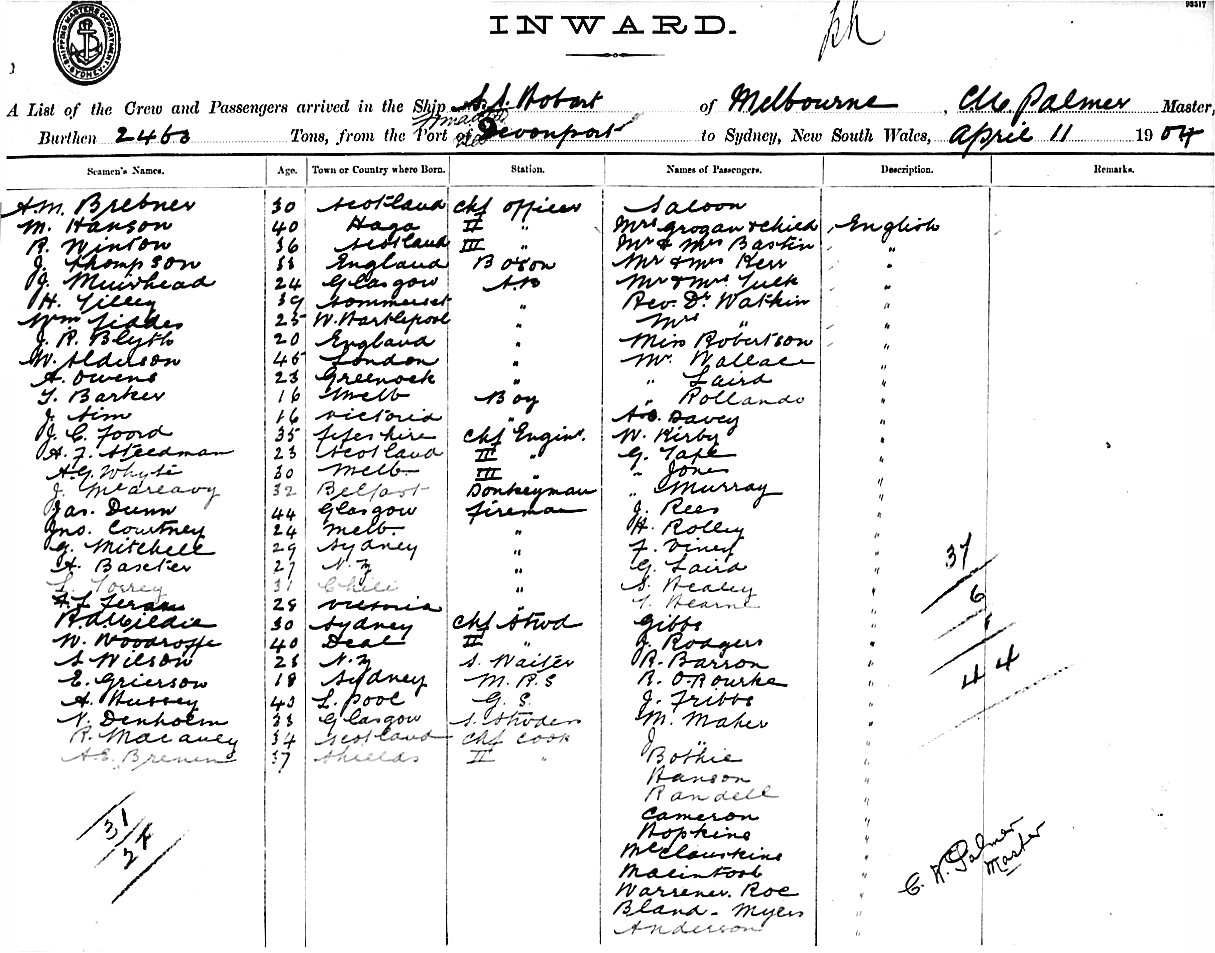 93517
INWARD.
SHIPPING MASTERS DEPARTMENT. SYDNEY.
A List of the Crew and Passengers arrived in the Ship S.S. Hobart of Melbourne, Palmer Master,
Burthen Tons, from the Port of Devonport to Sydney, New South Wales, April 11 1904
Seamen's Names. Age. Town or Country where Born. Station. Names of Passengers. Description. Remarks.
Saloon
A.M. Brebner 30 Scotland Chf Officer
M. Hanson 40 II " Mrs Grogan & child English
R. Winton 36 Scotland III " Mr & Mrs Bastin "
J. Thompson England Boson Mr & Mrs Kerr "
J. Muirhead 24 Glasgow AB Mr & Mrs Tuck "
H. Tilley 39 Sommerset " Rev. Dr. Watkin "
Wm. Fiddes 25 W. Hartlepool " Mrs " "
J. R. Blyth 20 England " Miss Robertson "
W. Alderson 45 London " Mr. Wallace "
A. Owens 23 Greenock " " Laird "
T. Barker 16 Melb Boy " Rollando "
J. Sim 16 Victoria " Davey "
J. C. Foord 35 Fifeshire Chf Engin. W. Kirby "
A. F. Steedman 23 Scotland II " G. Tape "
A.G. Whyte 30 Melb III " " Jones "
J. McAreavy 32 Belfast Donkeyman " Murray "
Jas. Dunn 44 Glasgow Fireman J. Rees "
Jno. Courtney 24 Melb. " H. Rolley "
G. Mitchell 29 Sydney " F. Viney "
A. Baxter 27 N.Z " G. Laird "
L. Torrey 31 Chili " S. Healey "
28 Victoria " Hearne "
30 Sydney Chf Stwd Gibbs "
W. Woodroffe 40 Deal II " J. Rodgers "
S. Wilson 28 N.Z S. Waiter R. Barron "
E. Grierson 18 Sydney M.R.S R. O'Rourke "
A. Hussey 40 L. pool G.S. J. Fribbs "
N. Denholm 33 Glasgow M. Maher "
R. Macauley 34 Scotland Chf Cook J. " "
A.E. 37 Shields II " Bothie "
Hanson "
Randell "
Cameron "
Hopkins "
McClauskins "
Macintosh "
Warrener. Roe "
Bland - Myers "
Anderson "
37
6
1
44
31
C. W. Palmer
Master